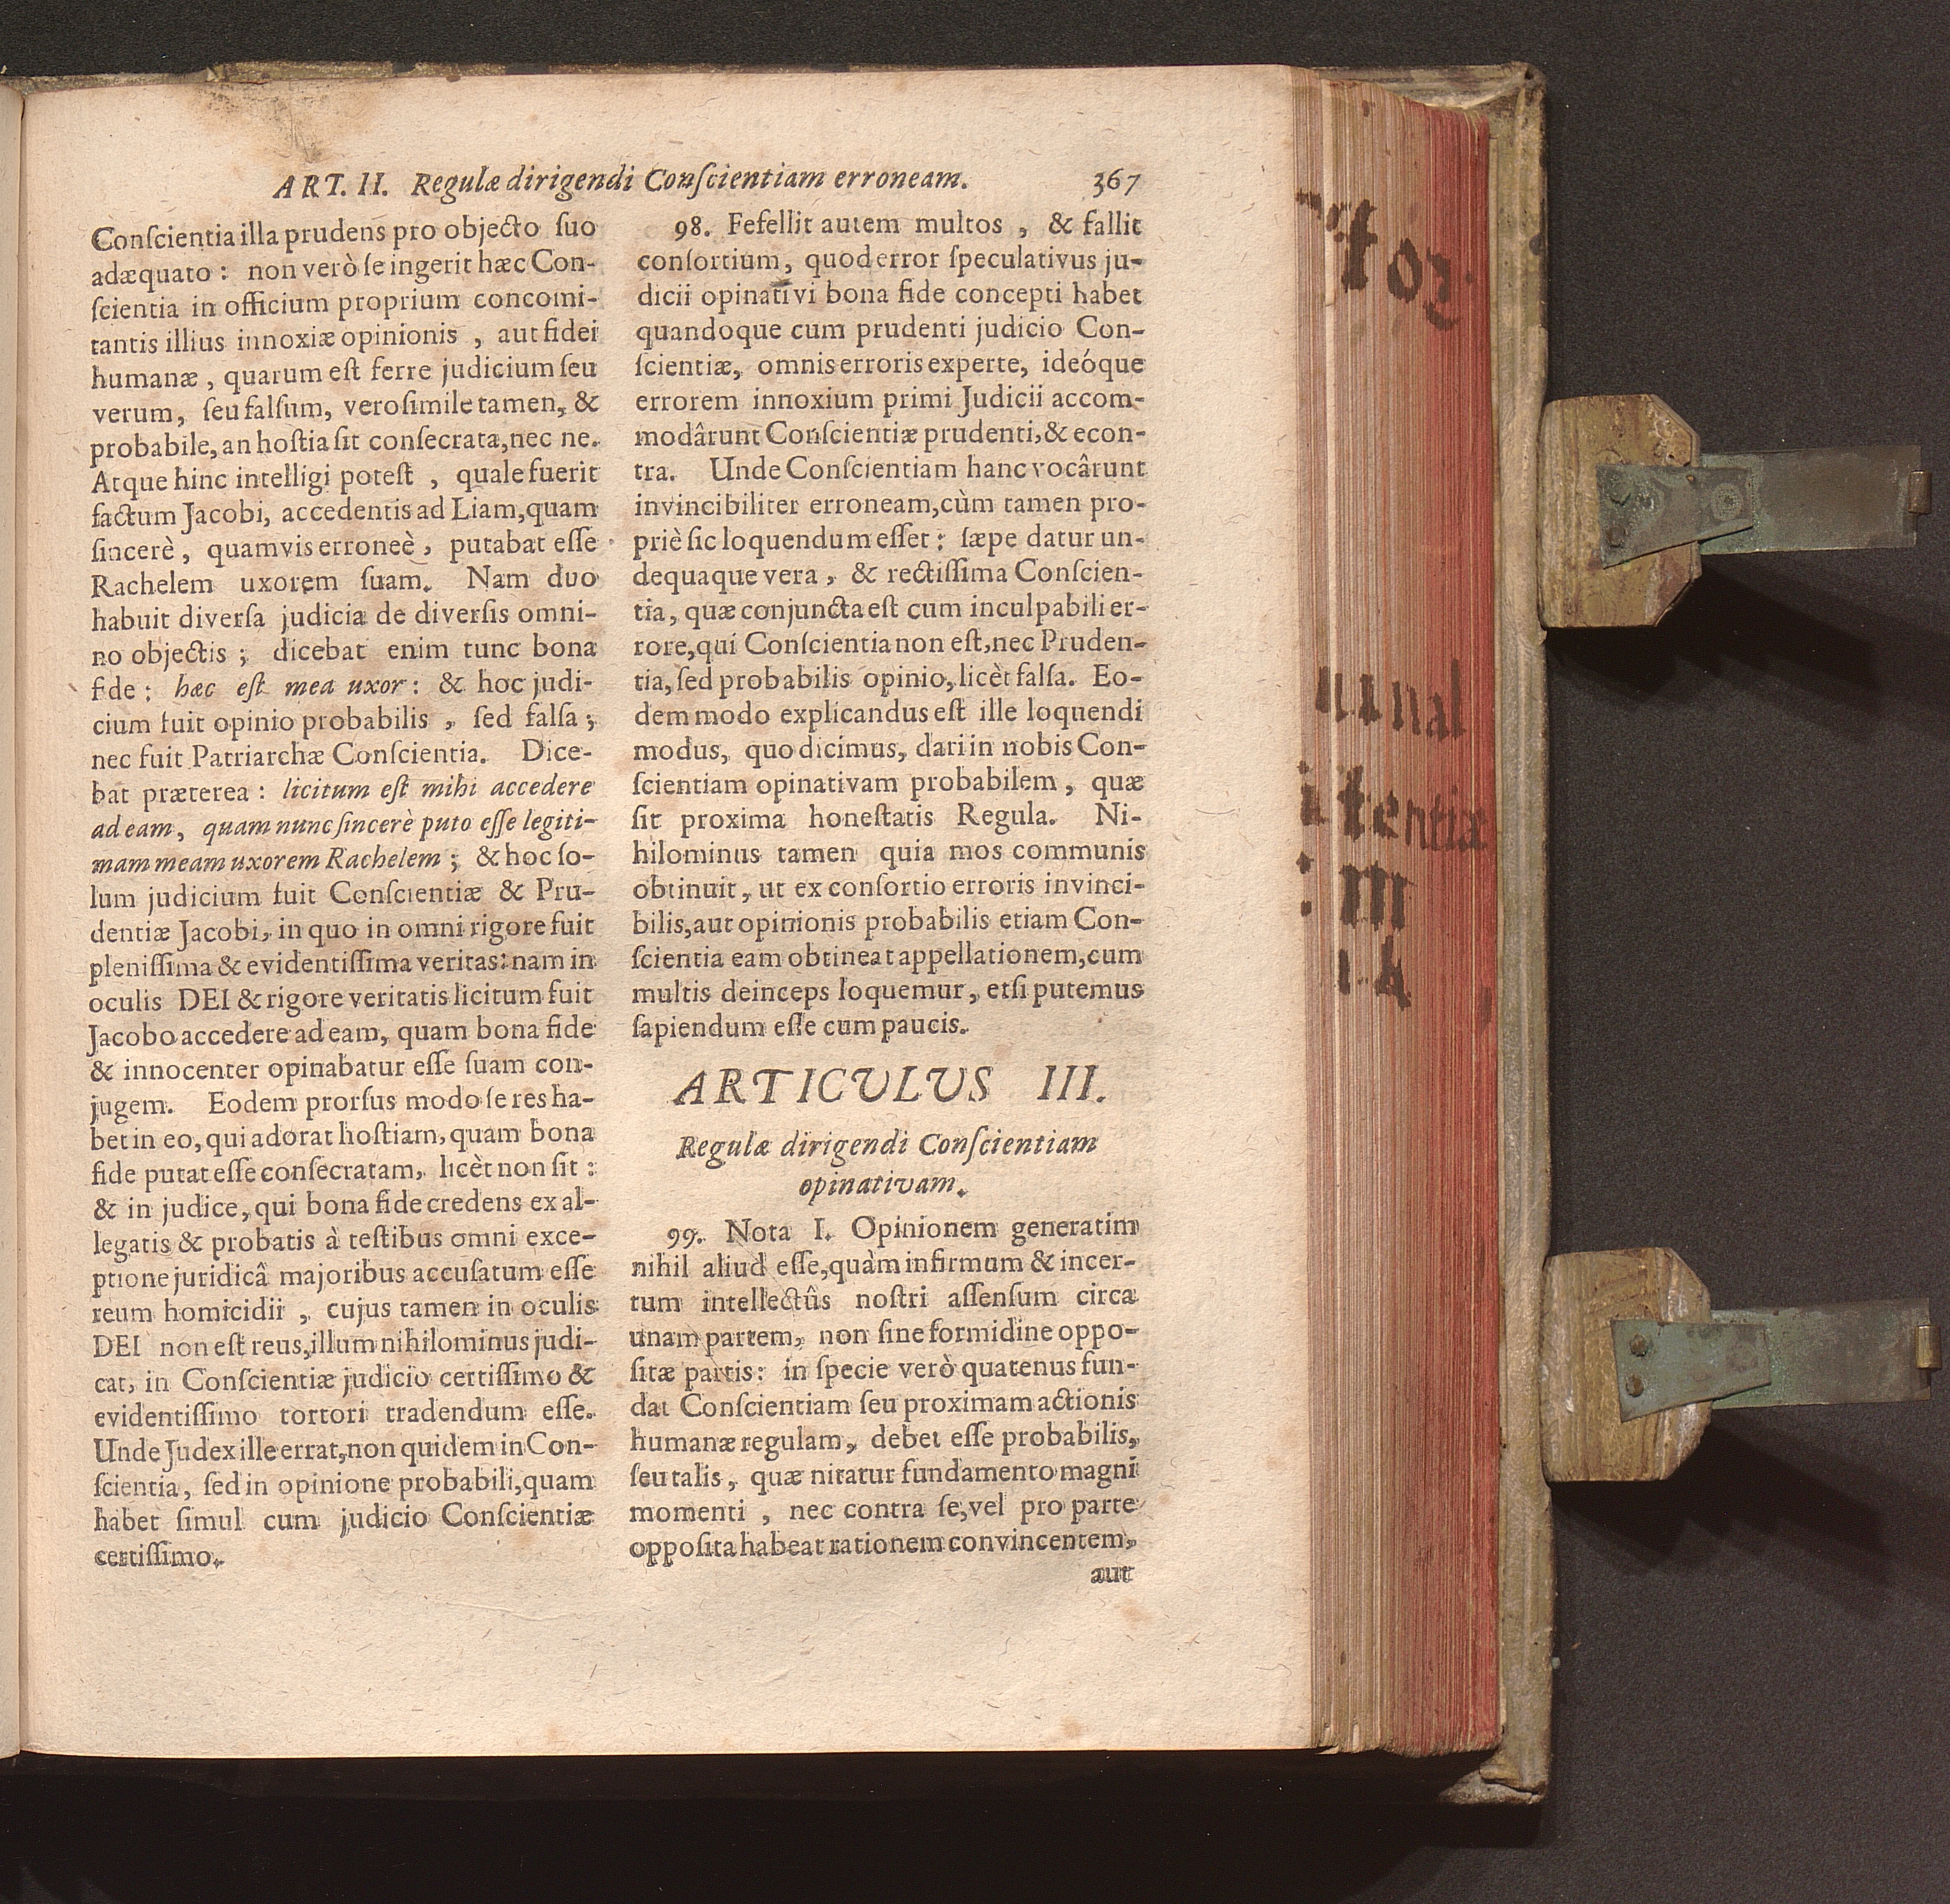 ART. II. Regulæ dirigendi Conſcientiam erroneam. 367
Conſcientia illa prudens pro objecto ſuo
adæquato : non verò ſe ingerit hæc Con-
ſcientia in officium proprium concomi-
tantis illius innoxiæ opinionis , aut fidei
humanæ , quarum eſt ferre judicium ſeu
verum, ſeu falſum, veroſimile tamen, &
probabile, an hoſtia ſit conſecrata, nec ne.
Atque hinc intelligi poteſt , quale fuerit
factum Jacobi, accedentis ad Liam, quam
ſincerè, quamvis erroneè, putabat eſſe
Rachelem uxorem ſuam. Nam duo
habuit diverſa judicia de diverſis omni-
no objectis ; dicebat enim tunc bona
fide : hæc eſt mea uxor : & hoc judi-
cium fuit opinio probabilis , ſed falſa ;
nec fuit Patriarchæ Conſcientia. Dice-
bat præterea : licitum eſt mihi accedere
ad eam, quam nunc ſincerè puto eſſe legiti-
mam meam uxorem Rachelem ; & hoc ſo-
lum judicium fuit Conſcientiæ & Pru-
dentiæ Jacobi, in quo in omni rigore fuit
pleniſſima & evidentiſſima veritas : nam in
oculis DEI & rigore veritatis licitum fuit
Jacobo accedere ad eam, quam bona fide
& innocenter opinabatur eſſe ſuam con-
jugem. Eodem prorſus modo ſe res ha-
bet in eo, qui adorat hoſtiam, quam bona
fide putat eſſe conſecratam, licèt non ſit :
& in judice, qui bona fide credens ex al-
legatis & probatis à teſtibus omni exce-
ptione juridicâ majoribus accuſatum eſſe
reum homicidii , cujus tamen in oculis
DEI non eſt reus, illum nihilominus judi-
cat, in Conſcientiæ judicio certiſſimo &
evidentiſſimo tortori tradendum eſſe.
Unde Judex ille errat, non quidem in Con-
ſcientia, ſed in opinione probabili, quam
habet ſimul cum judicio Conſcientiæ
certiſſimo.
98. Fefellit autem multos , & fallit
conſortium, quod error ſpeculativus ju-
dicii opinativi bona fide concepti habet
quandoque cum prudenti judicio Con-
ſcientiæ, omnis erroris experte, ideóque
errorem innoxium primi Judicii accom-
modârunt Conſcientiæ prudenti, & econ-
tra. Unde Conſcientiam hanc vocârunt
invincibiliter erroneam, cùm tamen pro-
priè ſic loquendum eſſet : ſæpe datur un-
dequaque vera, & rectiſſima Conſcien-
tia, quæ conjuncta eſt cum inculpabili er-
rore, qui Conſcientia non eſt, nec Pruden-
tia, ſed probabilis opinio, licèt falſa. Eo-
dem modo explicandus eſt ille loquendi
modus, quo dicimus, dari in nobis Con-
ſcientiam opinativam probabilem , quæ
ſit proxima honeſtatis Regula. Ni-
hilominus tamen quia mos communis
obtinuit, ut ex conſortio erroris invinci-
bilis, aut opinionis probabilis etiam Con-
ſcientia eam obtineat appellationem, cum
multis deinceps loquemur, etſi putemus
ſapiendum eſſe cum paucis.
ARTICULUS III.
Regulæ dirigendi Conſcientiam
opinativam.
99. Nota I. Opinionem generatim
nihil aliud eſſe, quàm infirmum & incer-
tum intellectûs noſtri aſſenſum circa
unam partem, non ſine formidine oppo-
ſitæ partis : in ſpecie verò quatenus fun-
dat Conſcientiam ſeu proximam actionis
humanæ regulam, debet eſſe probabilis,
ſeu talis, quæ nitatur fundamento magni
momenti , nec contra ſe, vel pro parte
oppoſita habeat rationem convincentem,
aut